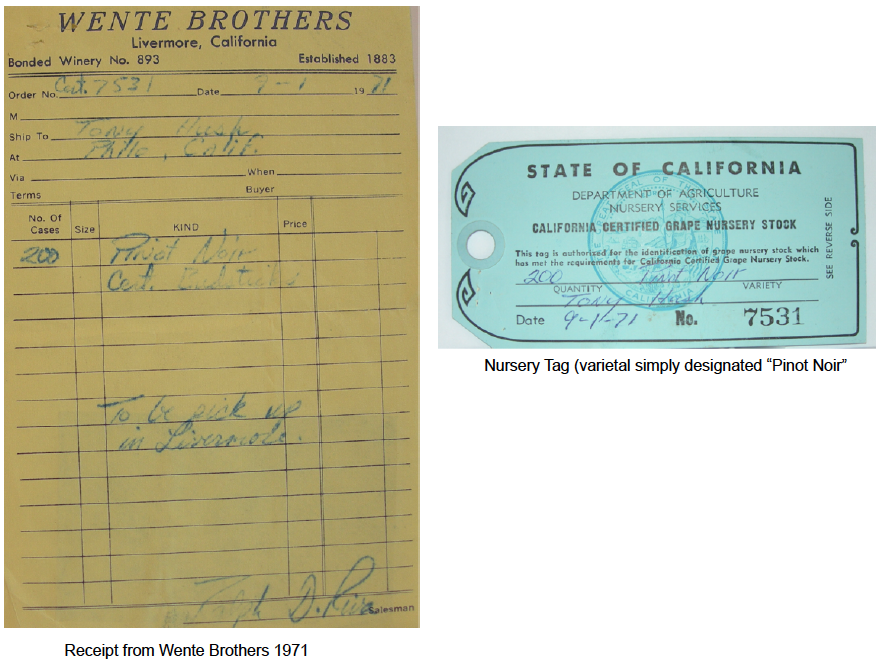 WENTE BROTHERS
Livermore, California
Bonded Winery No. 893 Established 1883
Order No. Cert. 7531 Date 9-1 1971
M
Ship To Tony Hush
At Philo, Calif.
Via When
Terms Buyer
No. Of Cases Size KIND Price
200 Pinot Noir
Cert.
To be pick up
in Livermore.
Ralph D. Salesman
Receipt from Wente Brothers 1971
STATE OF CALIFORNIA
DEPARTMENT OF AGRICULTURE
NURSERY SERVICES
CALIFORNIA CERTIFIED GRAPE NURSERY STOCK
This tag is authorized for the identification of grape nursery stock which
has met the requirements for California Certified Grape Nursery Stock.
200 Pinot Noir
QUANTITY VARIETY
Tony Hush
Date 9-1-71 No. 7531
SEE REVERSE SIDE
Nursery Tag (varietal simply designated “Pinot Noir”